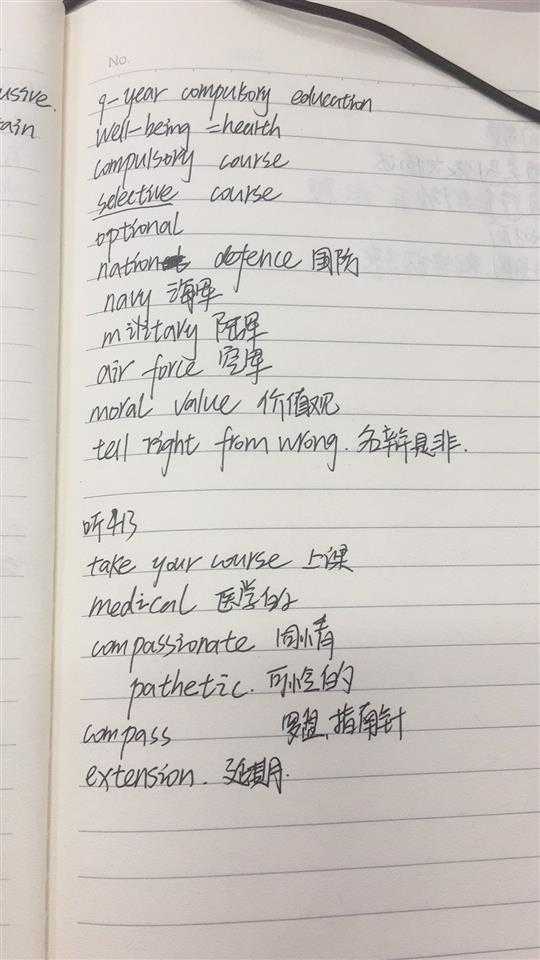 No.
usive.
tain
9-year compulsory education
well-being = health
compulsory course
selective course
optional
nation defence 国防
navy 海军
military 陆军
air force 空军
moral value 价值观
tell right from wrong. 名辩是非.
听413
take your course 上课
medical 医学的
compassionate 同情
pathetic. 可怜的
compass 罗盘, 指南针
extension. 延期.